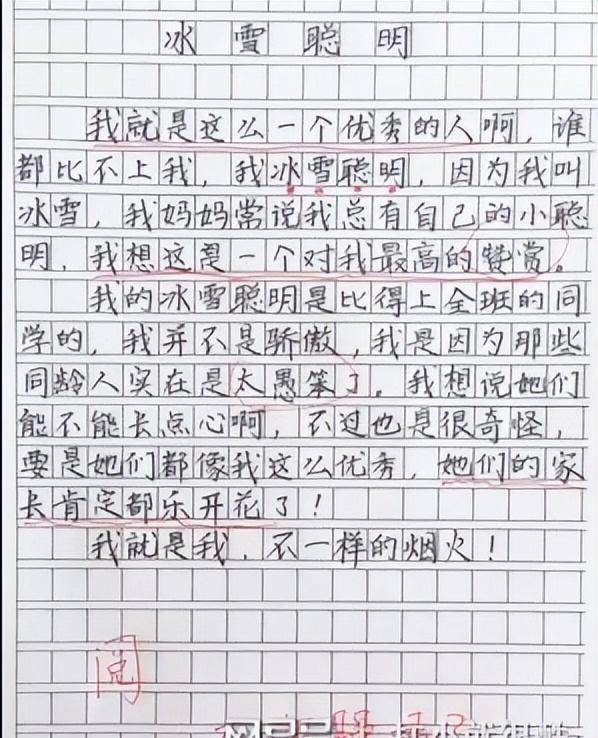 冰雪聪明
我就是这么一个优秀的人啊，谁
都比不上我，我冰雪聪明，因为我叫
冰雪，我妈妈常说我总有自己的小聪
明，我想这是一个对我最高的赞赏。
我的冰雪聪明是比得上全班的同
学的，我并不是骄傲，我是因为那些
同龄人实在是太愚笨了。我想说她们
能不能长点心啊，不过也是很奇怪，
要是她们都像我这么优秀，她们的家
长肯定都乐开花了！
我就是我，不一样的烟火！
阅